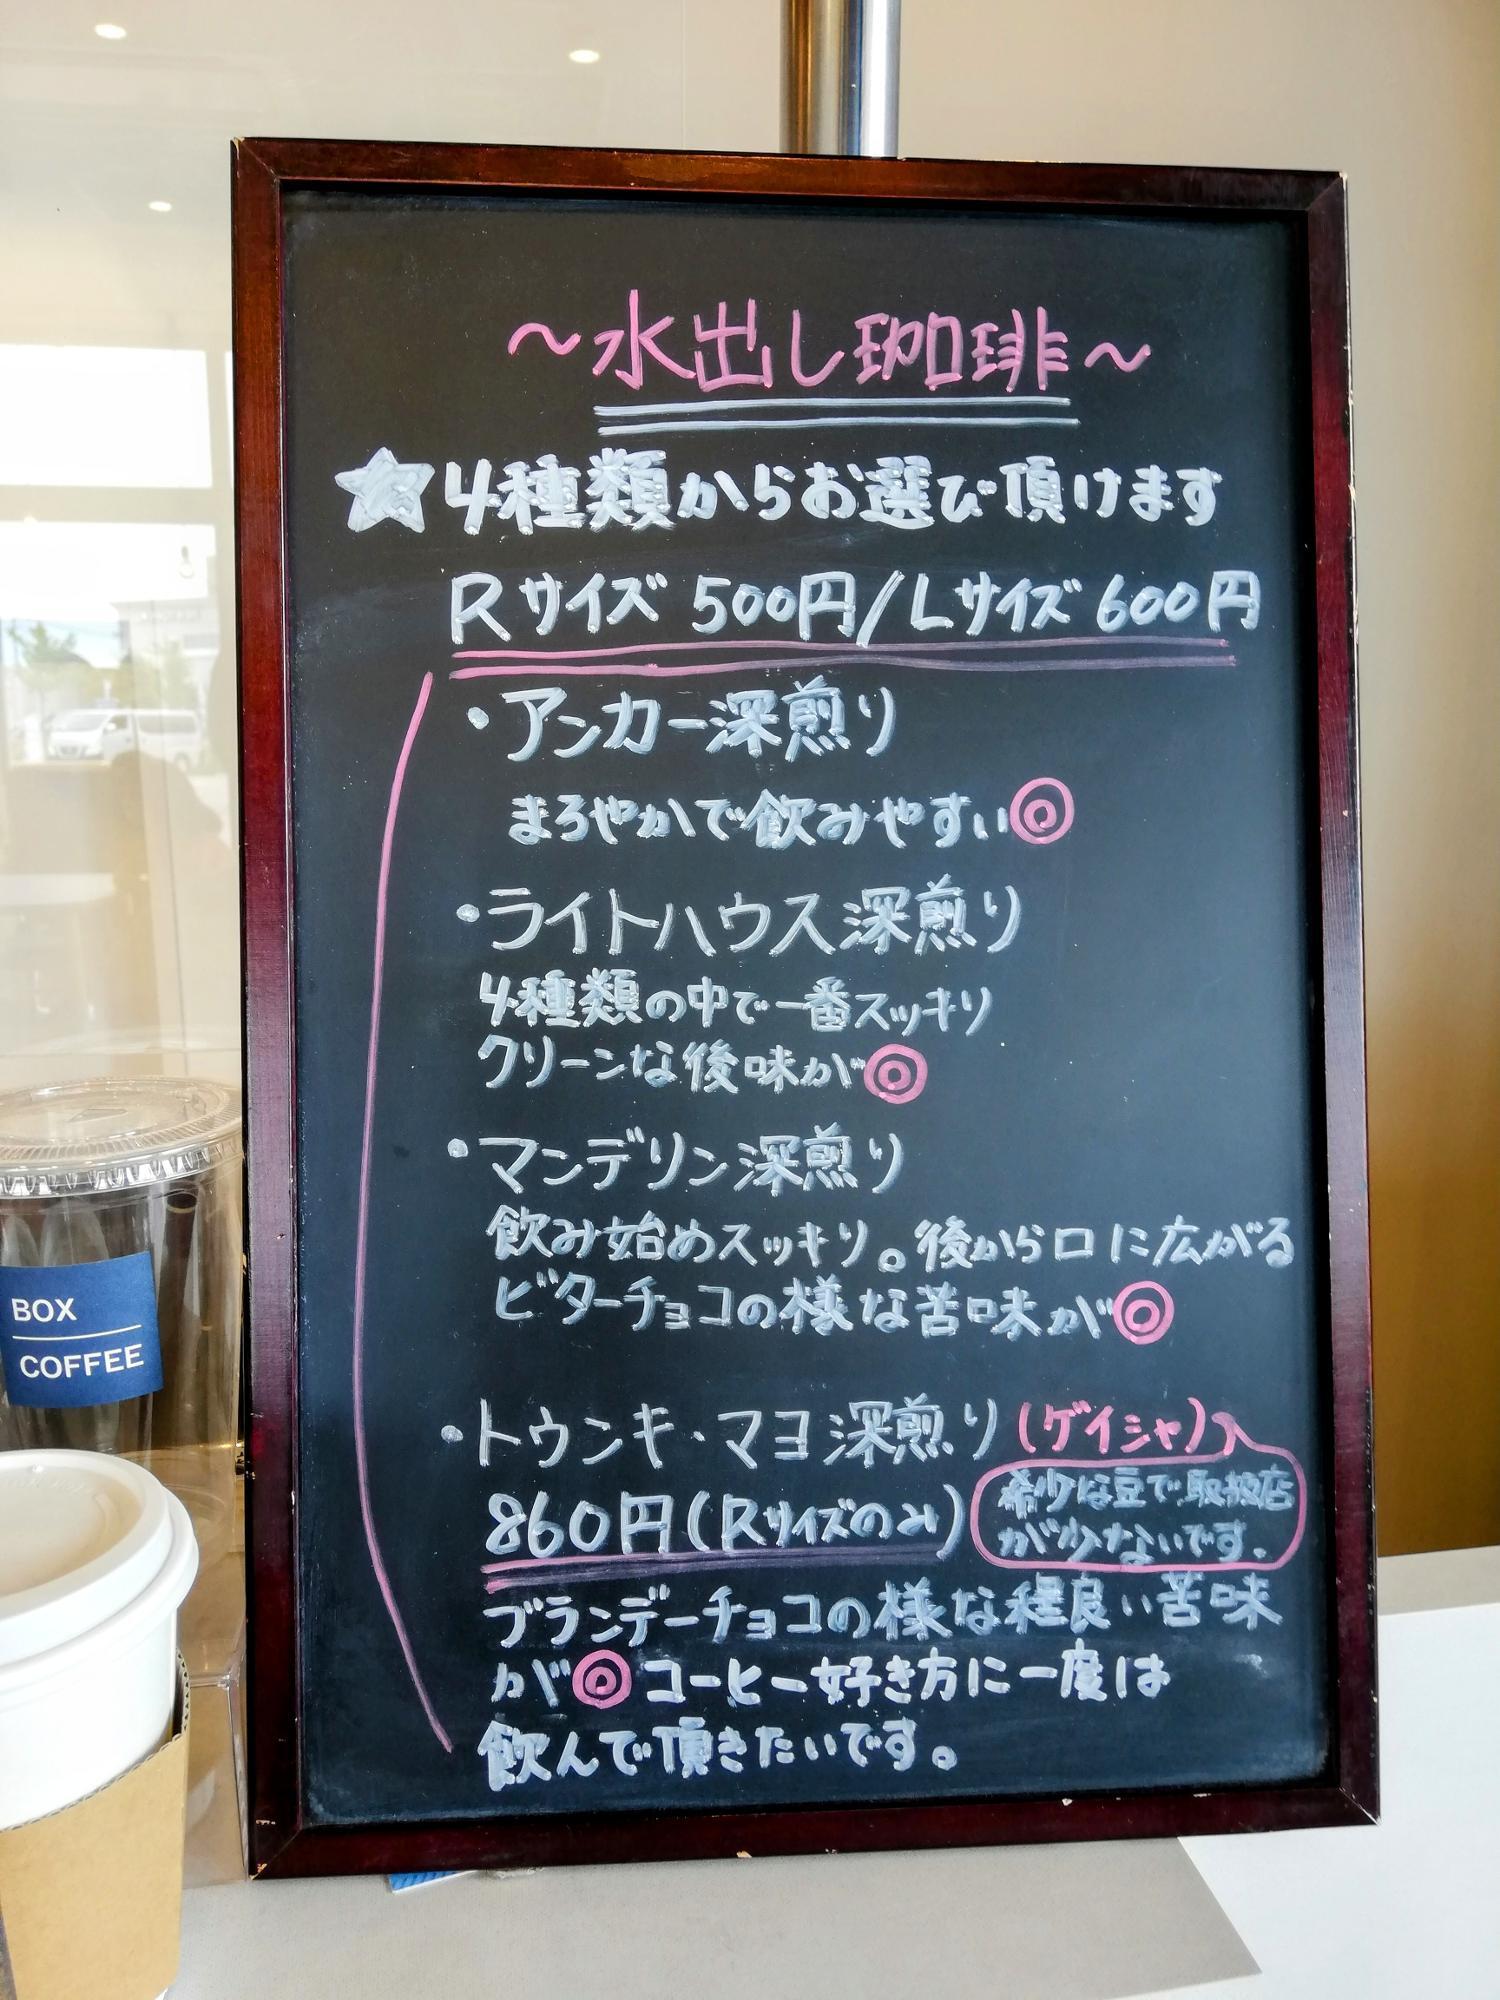 ~水出し珈琲~
★4種類からお選び頂けます
Rサイズ 500円/Lサイズ 600円
・アンカー深煎り
まろやかで飲みやすい◎
・ライトハウス深煎り
4種類の中で一番スッキリ
クリーンな後味が◎
・マンデリン深煎り
飲み始めスッキリ。後から口に広がる
ビターチョコの様な苦味が◎
・トゥンキ・マヨ深煎り(ゲイシャ)
860円(Rサイズのみ)
希少な豆で取扱店
が少ないです.
ブランデーチョコの様な程良い苦味
が◎コーヒー好き方に一度は
飲んで頂きたいです。
BOX
COFFEE